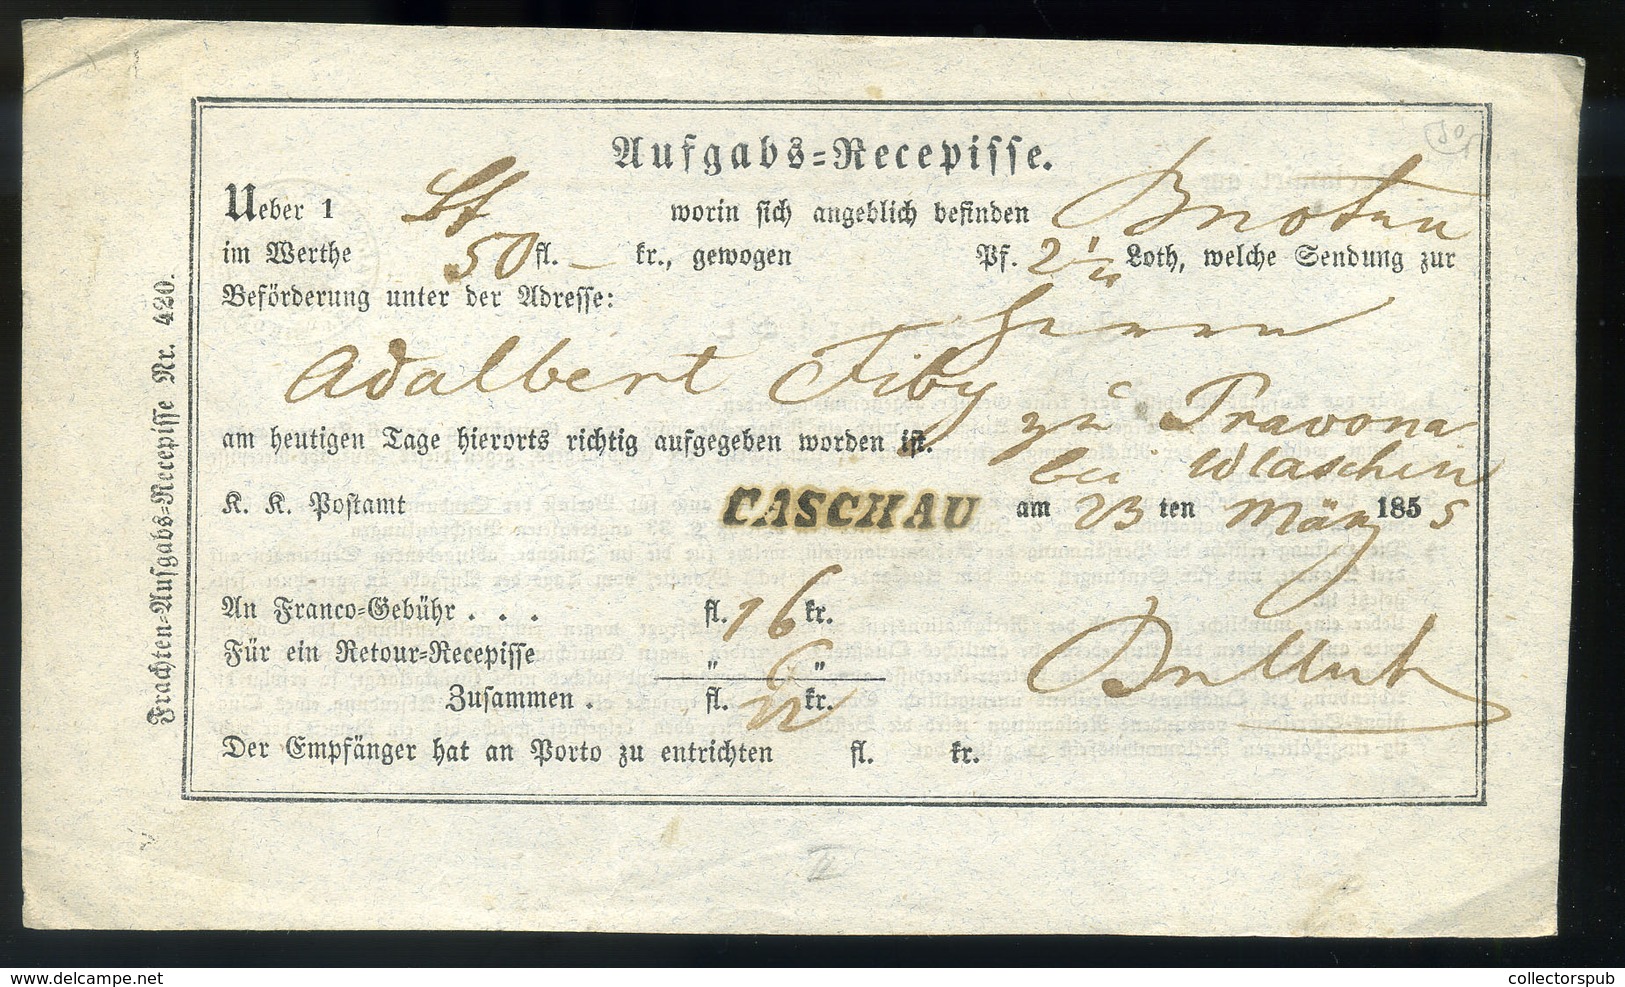 Aufgabs=Recepisse.
Ueber 1 worin sich angeblich befinden Bnoten
im Werthe 50 fl. – kr., gewogen Pf. 2 Loth, welche Sendung zur
Beförderung unter der Adresse: Herrn
Adalbert Fiby zu Pravona
am heutigen Tage hierorts richtig aufgegeben worden ist. bei Wlaschin
K. K. Postamt CASCHAU am 23 ten März 1855
An Franco=Gebühr . . . fl. 16 kr.
Für ein Retour=Recepisse " 6 "
Zusammen . fl. kr.
Der Empfänger hat an Porto zu entrichten fl. kr.
Frachten=Aufgabs=Recepisse Nr. 420.
www.delcampe.net
collectorspub